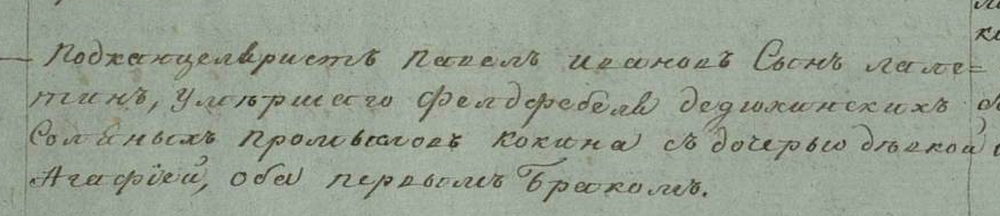 Подканцеляристъ Павелъ Ивановъ Сынъ лале=
тинъ, умѣршаго Фелдфебеля дедюхинскихъ
Соляныхъ промысловъ Кокина съ дочерью дѣвкой
Агафіей, оба первымъ Бракомъ.